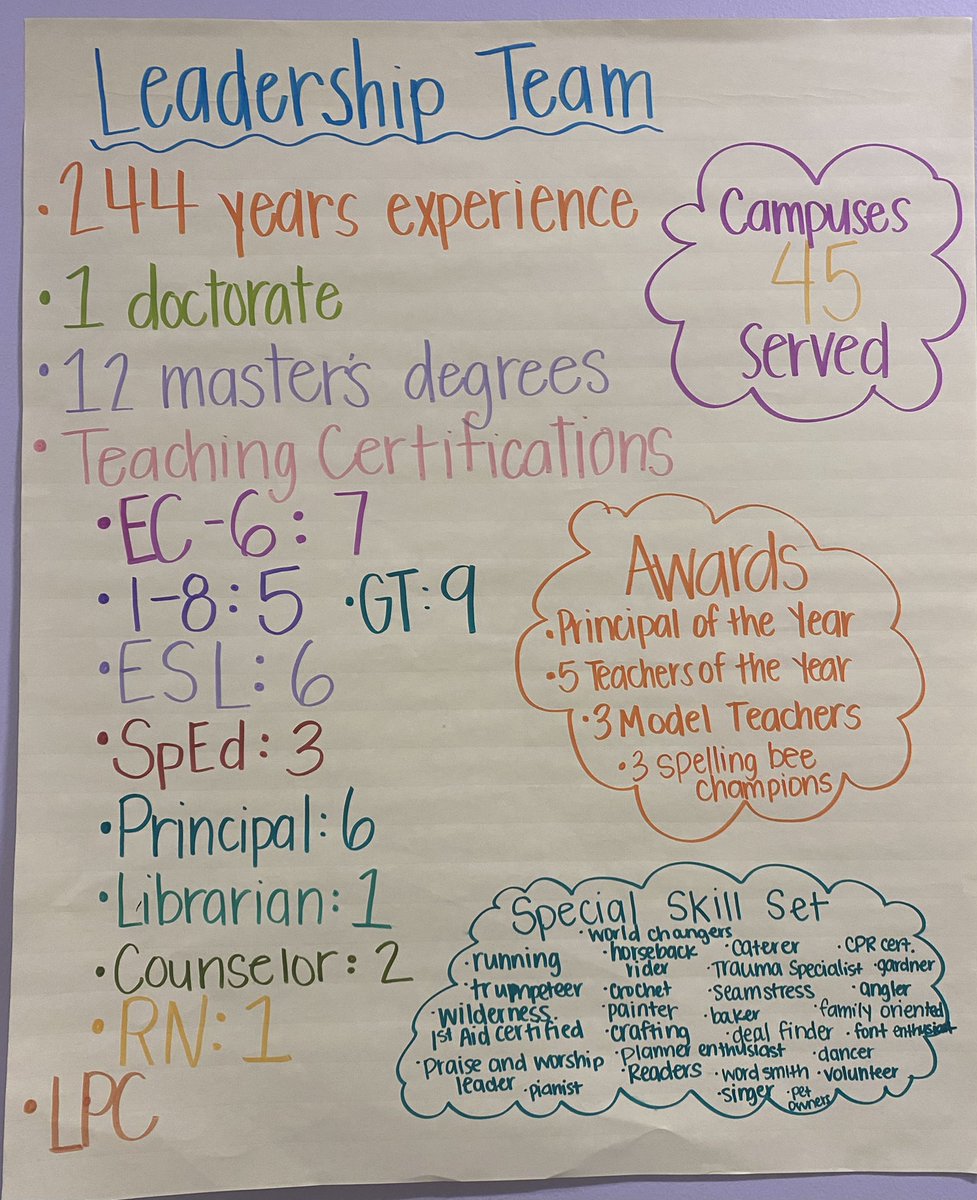 Leadership Team
·244 years experience
·1 doctorate
·12 master's degrees
·Teaching Certifications
·EC-6: 7
·1-8: 5 ·GT: 9
·ESL: 6
·SpEd: 3
·Principal: 6
·Librarian: 1
·Counselor: 2
·RN: 1
·LPC
Campuses
45
Served
Awards
·Principal of the Year
·5 Teachers of the Year
·3 Model Teachers
·3 spelling bee
champions
Special Skill Set
·world changers
·running
·trumpeteer
·wilderness
1st Aid certified
·Praise and worship
leader ·pianist
·horseback
rider
·crochet
·painter
·crafting
·Planner enthusiast
·Readers
·caterer ·CPR cert.
·Trauma Specialist ·gardner
·seamstress ·angler
·baker ·family oriented
·deal finder ·font enthusiast
·dancer
·word smith ·volunteer
·singer ·pet
owners